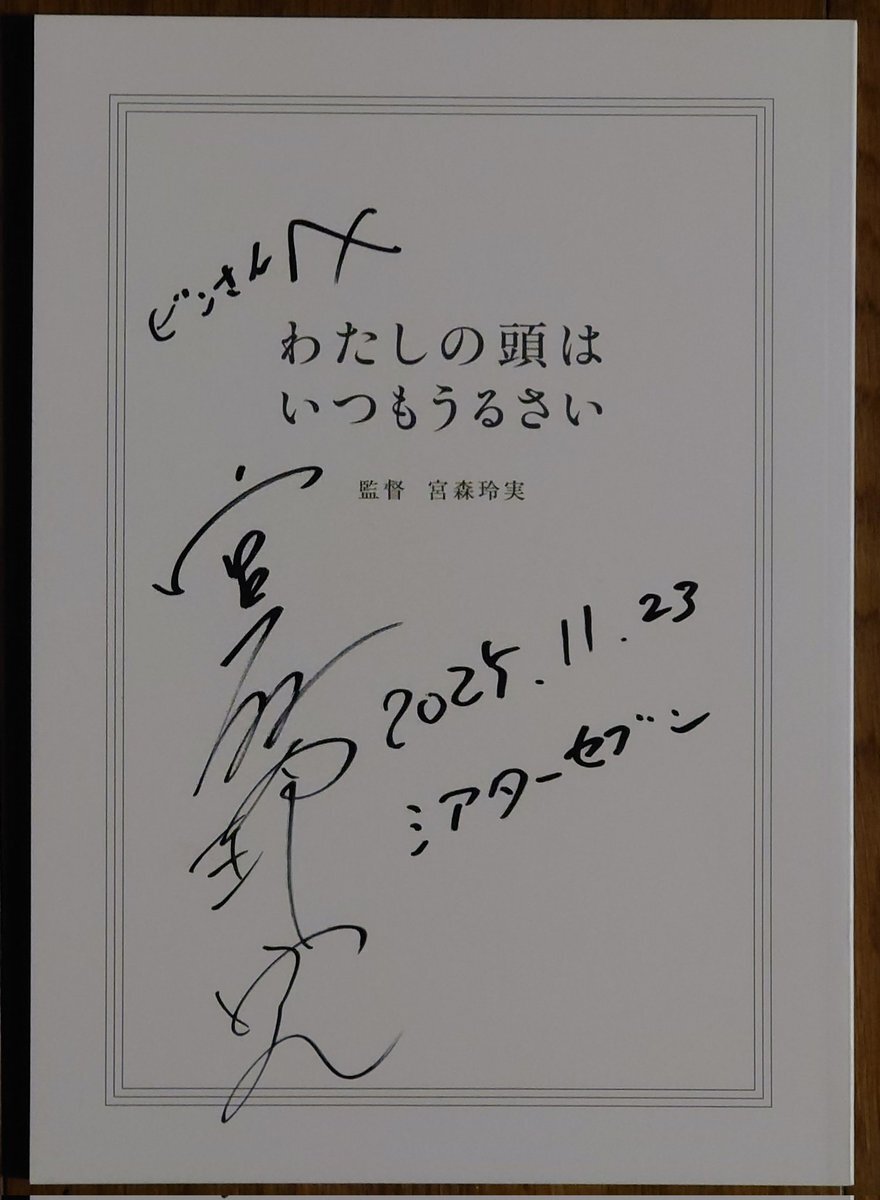 ビンさんへ
わたしの頭は
いつもうるさい
監督 宮森玲実
宮森玲実
2025.11.23
シアターセブン